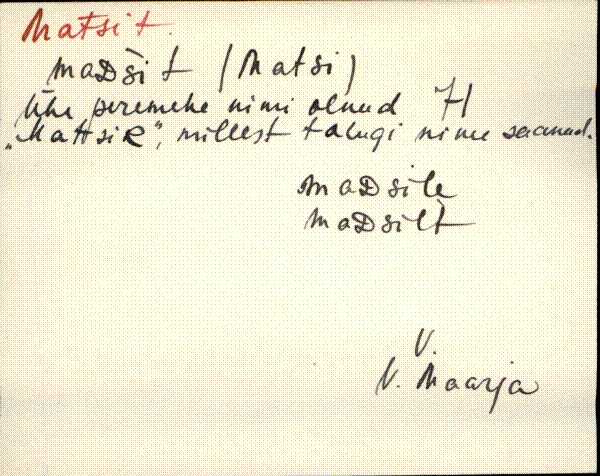 Matsit
maDšit (Matsi)
Ühe peremehe nimi olnud H
„MattsiR", millest talugi nime saanud.
maDsile
maDsilt
V.
V. Maarja